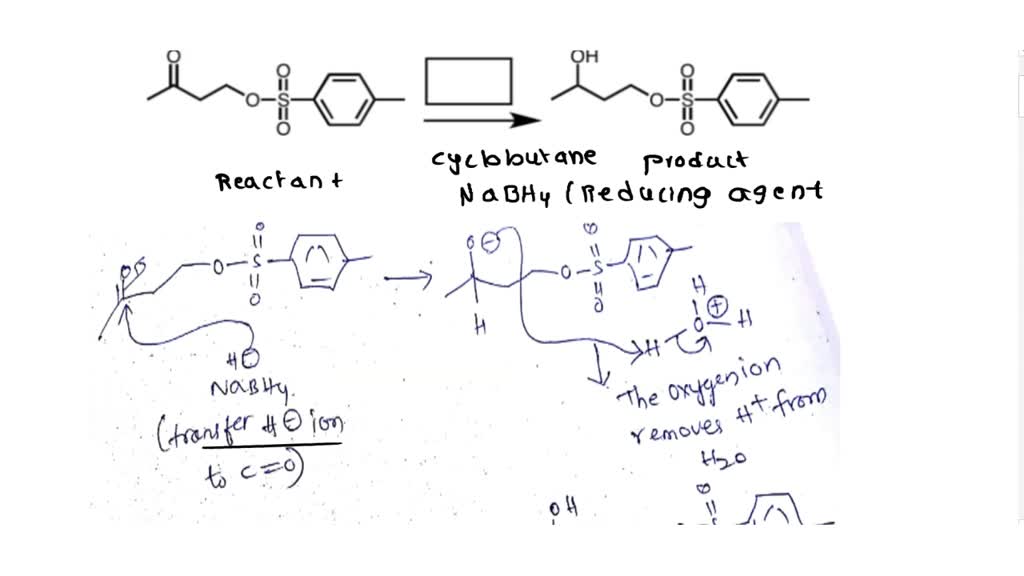 O
OH
O
O
O
S
O
O
S
O
O
cyclobutane
product
Reactant
NaBH4 (Reducing agent
O
O
S
O
O
O
S
O
H
H
O
H
H
H
NaBH4.
(transfer H⊖ ion
to C=O)
The oxygen ion
removes H+ from
H2O
OH